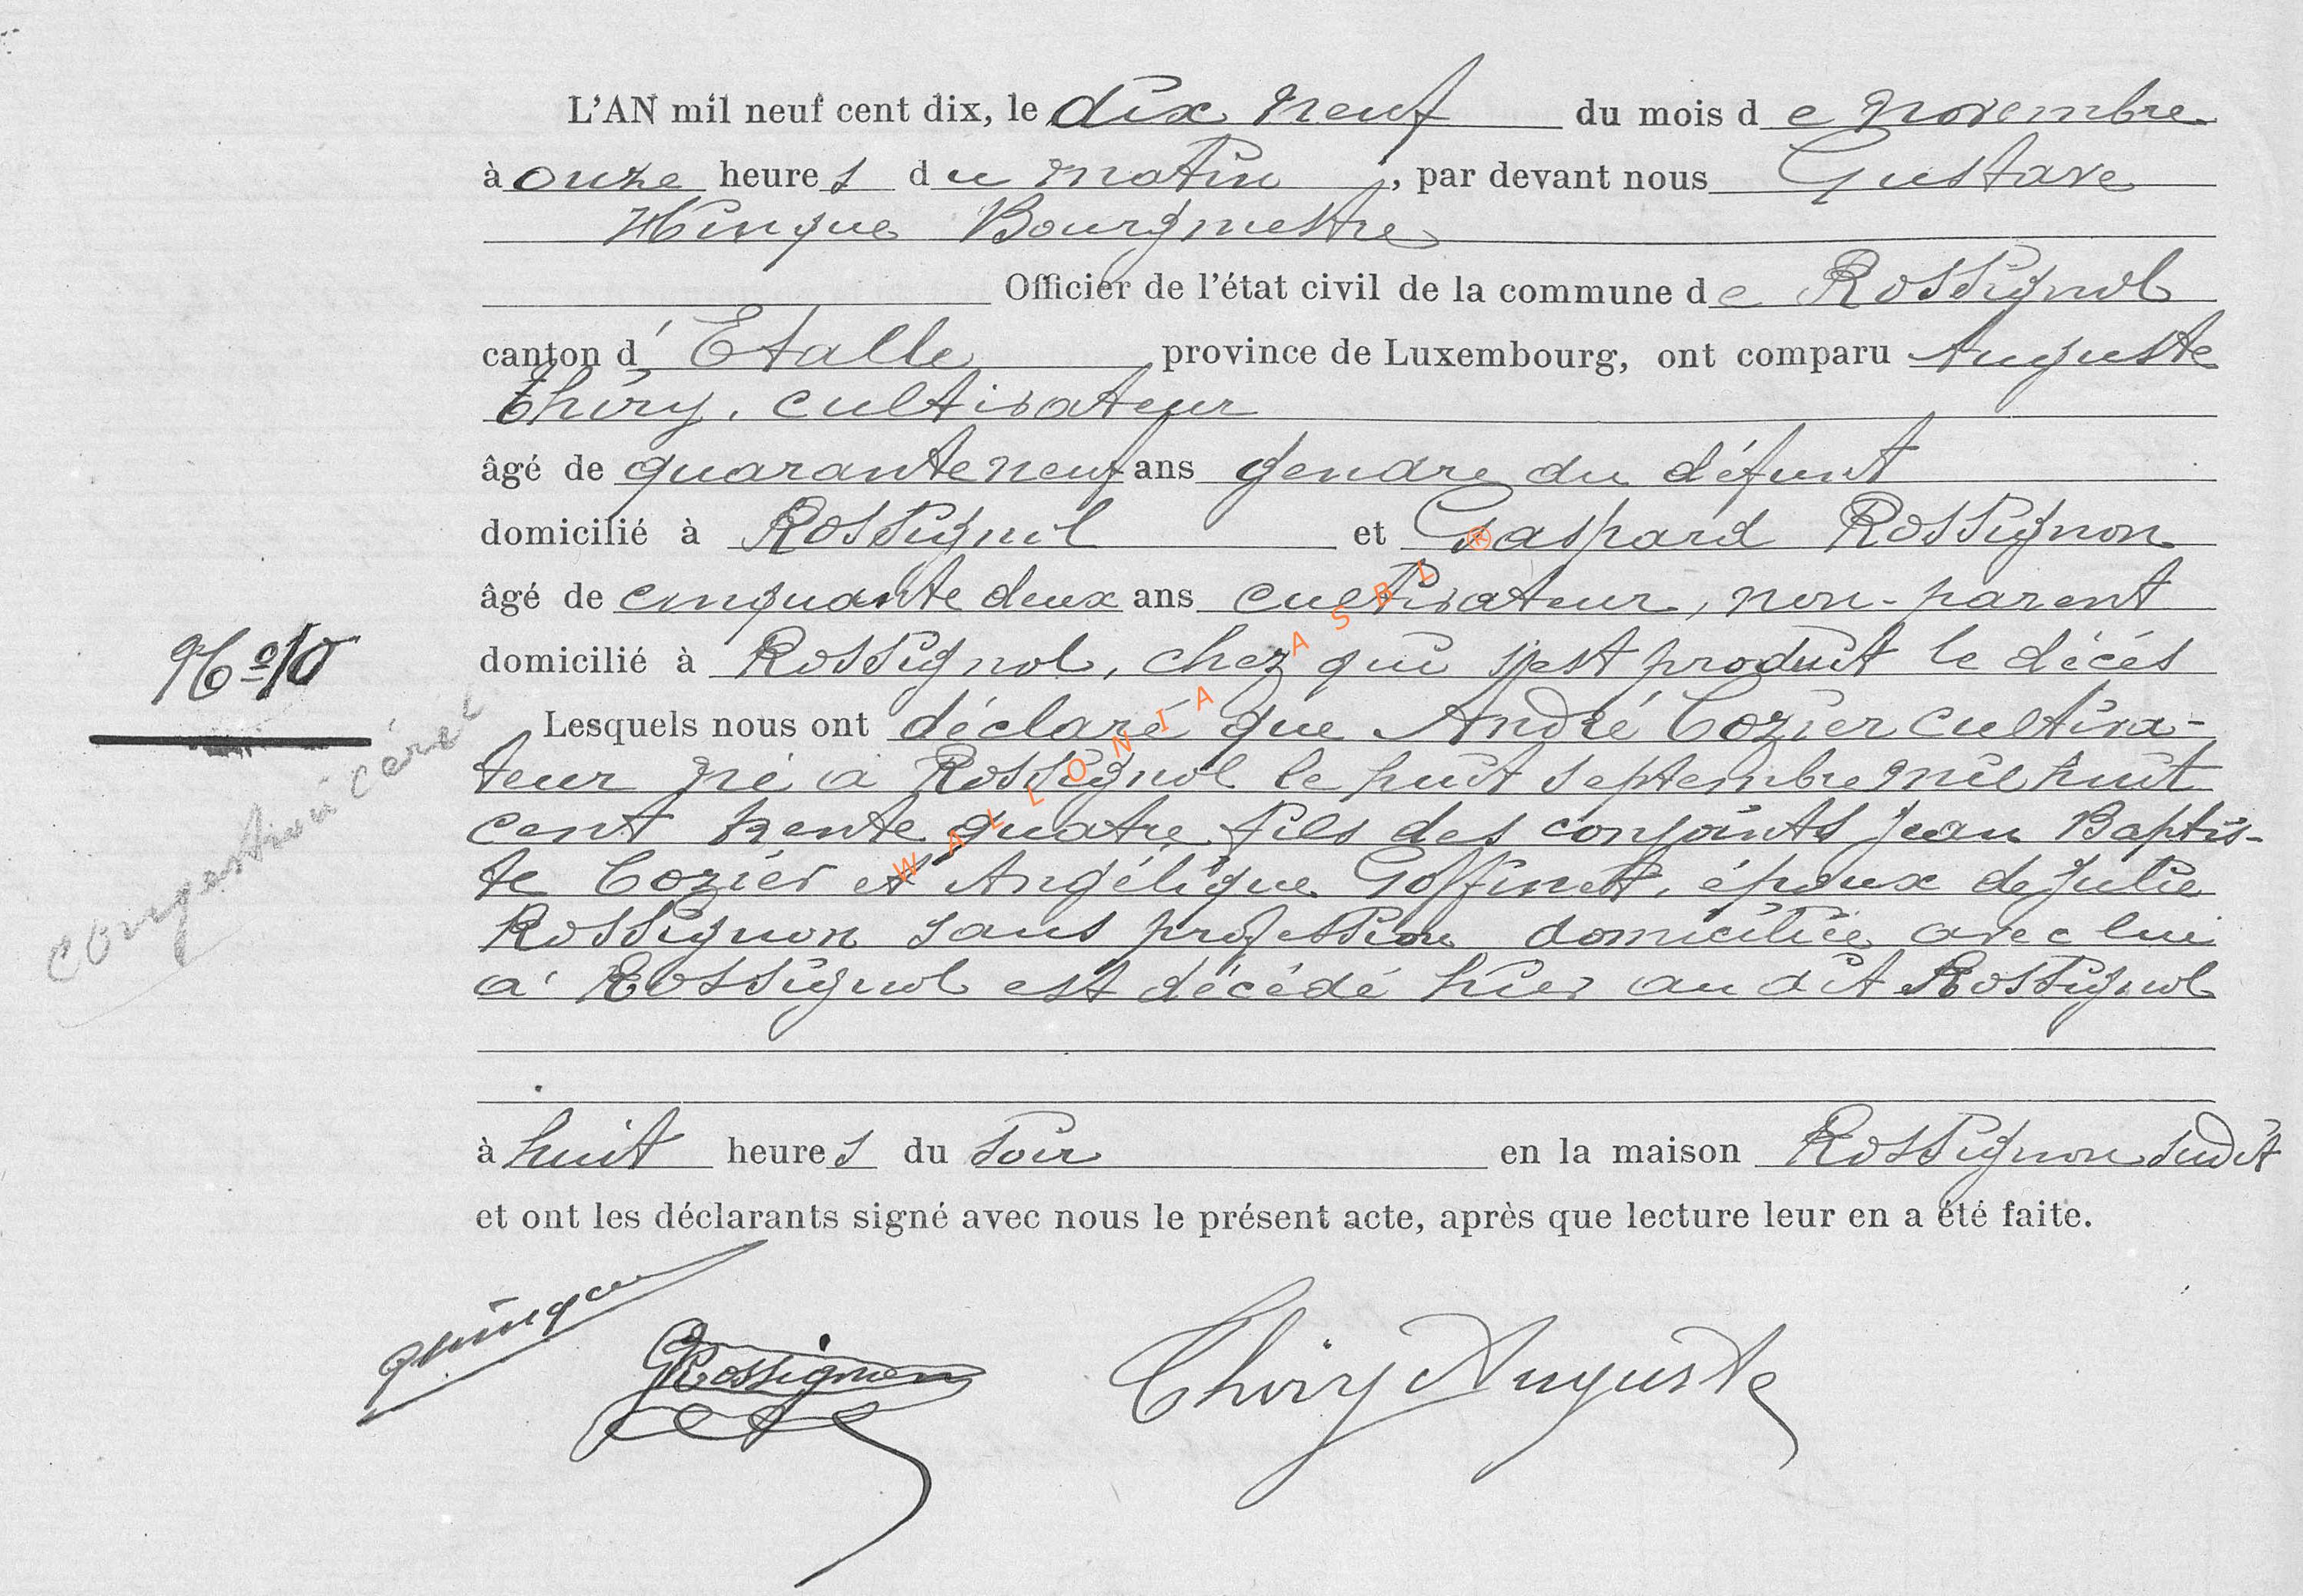 L'AN mil neuf cent dix, le dix neuf du mois de novembre
à onze heures du matin, par devant nous Gustave
Hinque Bourgmestre
Officier de l'état civil de la commune de Rossignol
canton d'Etalle province de Luxembourg, ont comparu Auguste
Thiry, cultivateur
âgé de quarante neuf ans gendre du défunt
domicilié à Rossignol et Gaspard Rossignon
âgé de cinquante deux ans cultivateur, non-parent
domicilié à Rossignol, chez qui s'est produit le décès
N° 10
Lesquels nous ont déclaré que André Cozier cultiva-
teur né à Rossignol le huit septembre mil huit
cent trente quatre fils des conjoints Jean Baptis-
te Cozier et Angélique Goffinet, époux de Julie
Rossignon sans profession domiciliée avec lui
à Rossignol est décédé hier au dit Rossignol
congestion cérér
à huit heures du soir en la maison Rossignon sudit
et ont les déclarants signé avec nous le présent acte, après que lecture leur en a été faite.
GRossignon
Thiry Auguste
WALLONIA ASBL ®